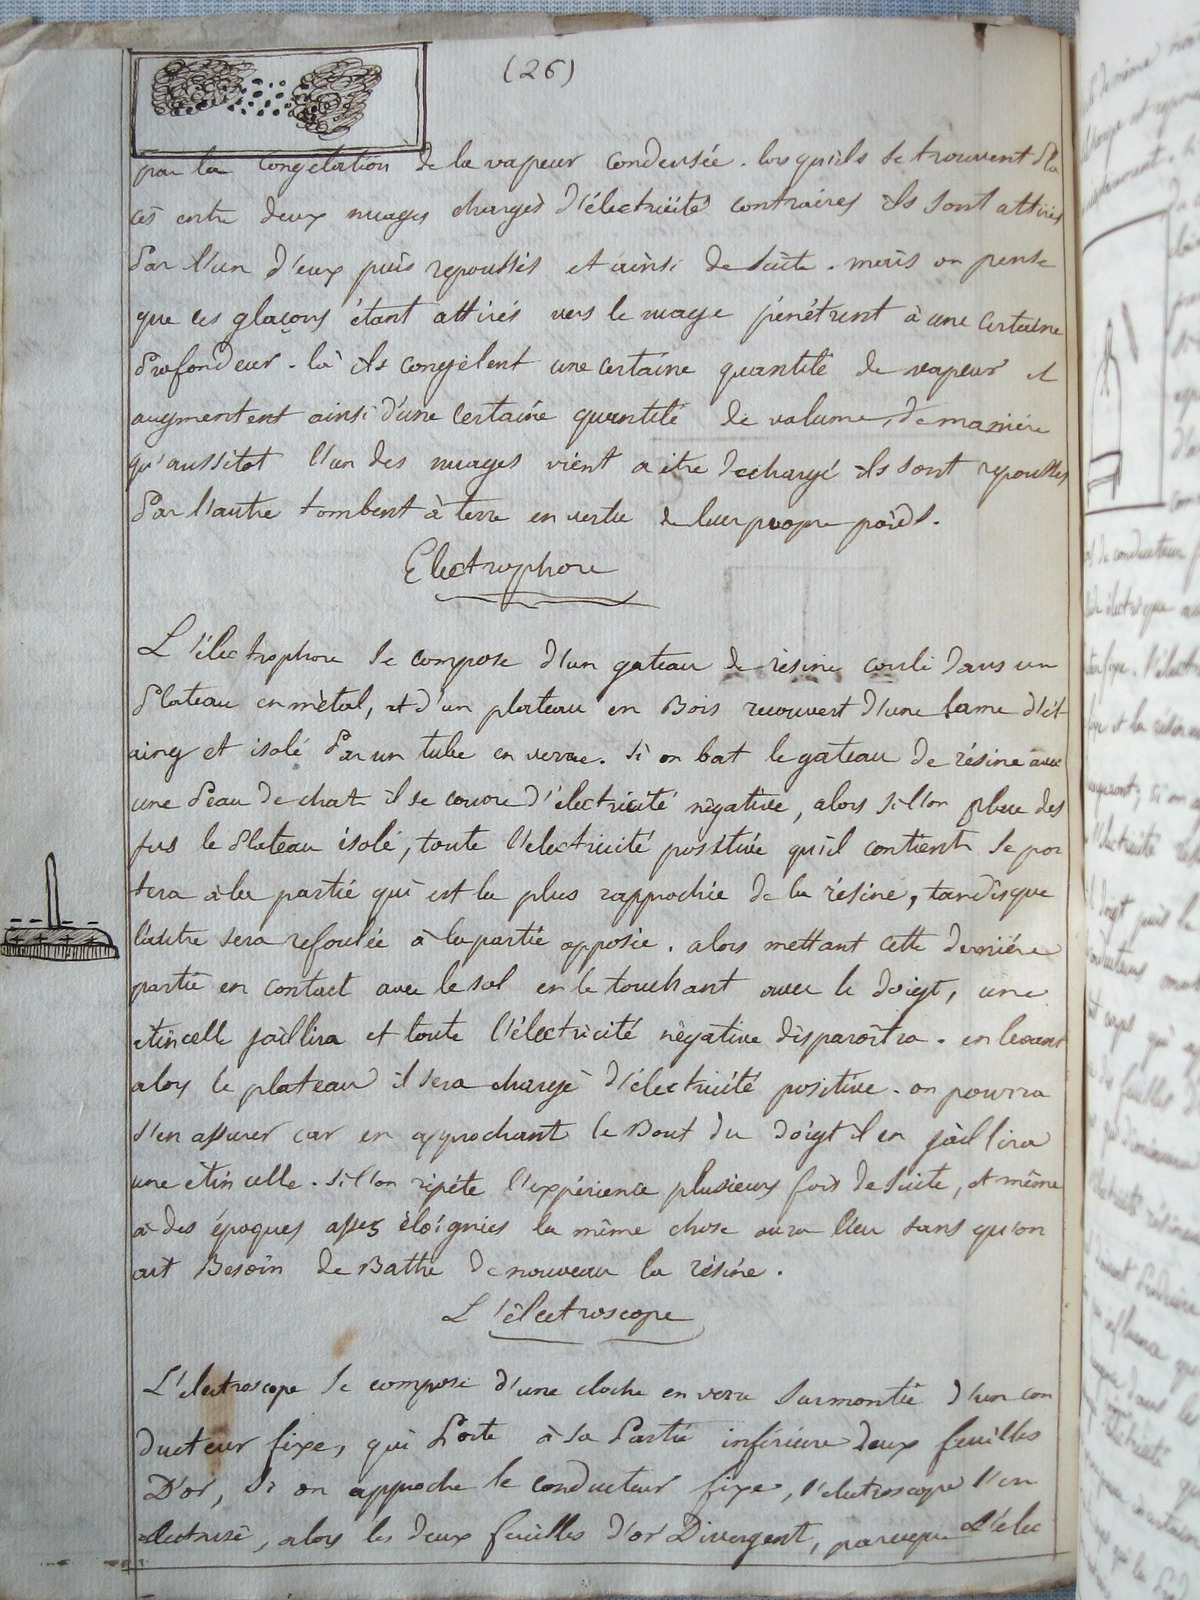 (26)
par la congelation de la vapeur condensée. lorsqu'ils se trouvent pla
cés entre deux nuages chargés d'électricité contraires ils sont attirés
par l'un d'eux puis repoussés et ainsi de suite. mais on pense
que ces glaçons étant attirés vers le nuage pénétrent à une certaine
profondeur. là ils congèlent une certaine quantité de vapeur et
augmentent ainsi d'une certaine quantité de volume, de manière
qu'aussitot l'un des nuages vient a être dechargé ils sont repoussés
par l'autre tombent à terre en vertu de leur propre poids.
Electrophore
L'électrophore se compose d'un gateau de résine coulé dans un
plateau en métal, et d'un plateau en Bois recouvert d'une lame d'ét
aing et isolé par un tube en verre. si on bat le gateau de résine avec
une peau de chat il se couvre d'électricité négative, alors si l'on place des
sus le plateau isolé, toute l'electricité positive qu'il contient se por
tera à la partie qui est la plus rapprochée de la résine, tandisque
l'autre sera refoulée à la partie opposée. alors mettant cette dernière
partie en contact avec le sol en le touchant avec le doigt, une
etincelle jaillira et toute l'électricité négative disparaîtra. en levant
alors le plateau il sera chargé d'électricité positive. on pourra
s'en assurer car en approchant le Bout du doigt il en jaillira
une étincelle. si l'on répéte l'expérience plusieurs fois de suite, et même
à des époques assez éloignées la même chose aura lieu sans qu'on
ait Besoin de Battre de nouveau la résine.
L'électroscope
L'electroscope se compose d'une cloche en verre surmontée d'un con
ducteur fixe, qui porte à sa Partie inférieure deux feuilles
D'or, Si on approche le conducteur fixe, l'electroscope l'on
electrisé, alors les deux feuilles d'or Divergent, parceque L'elec